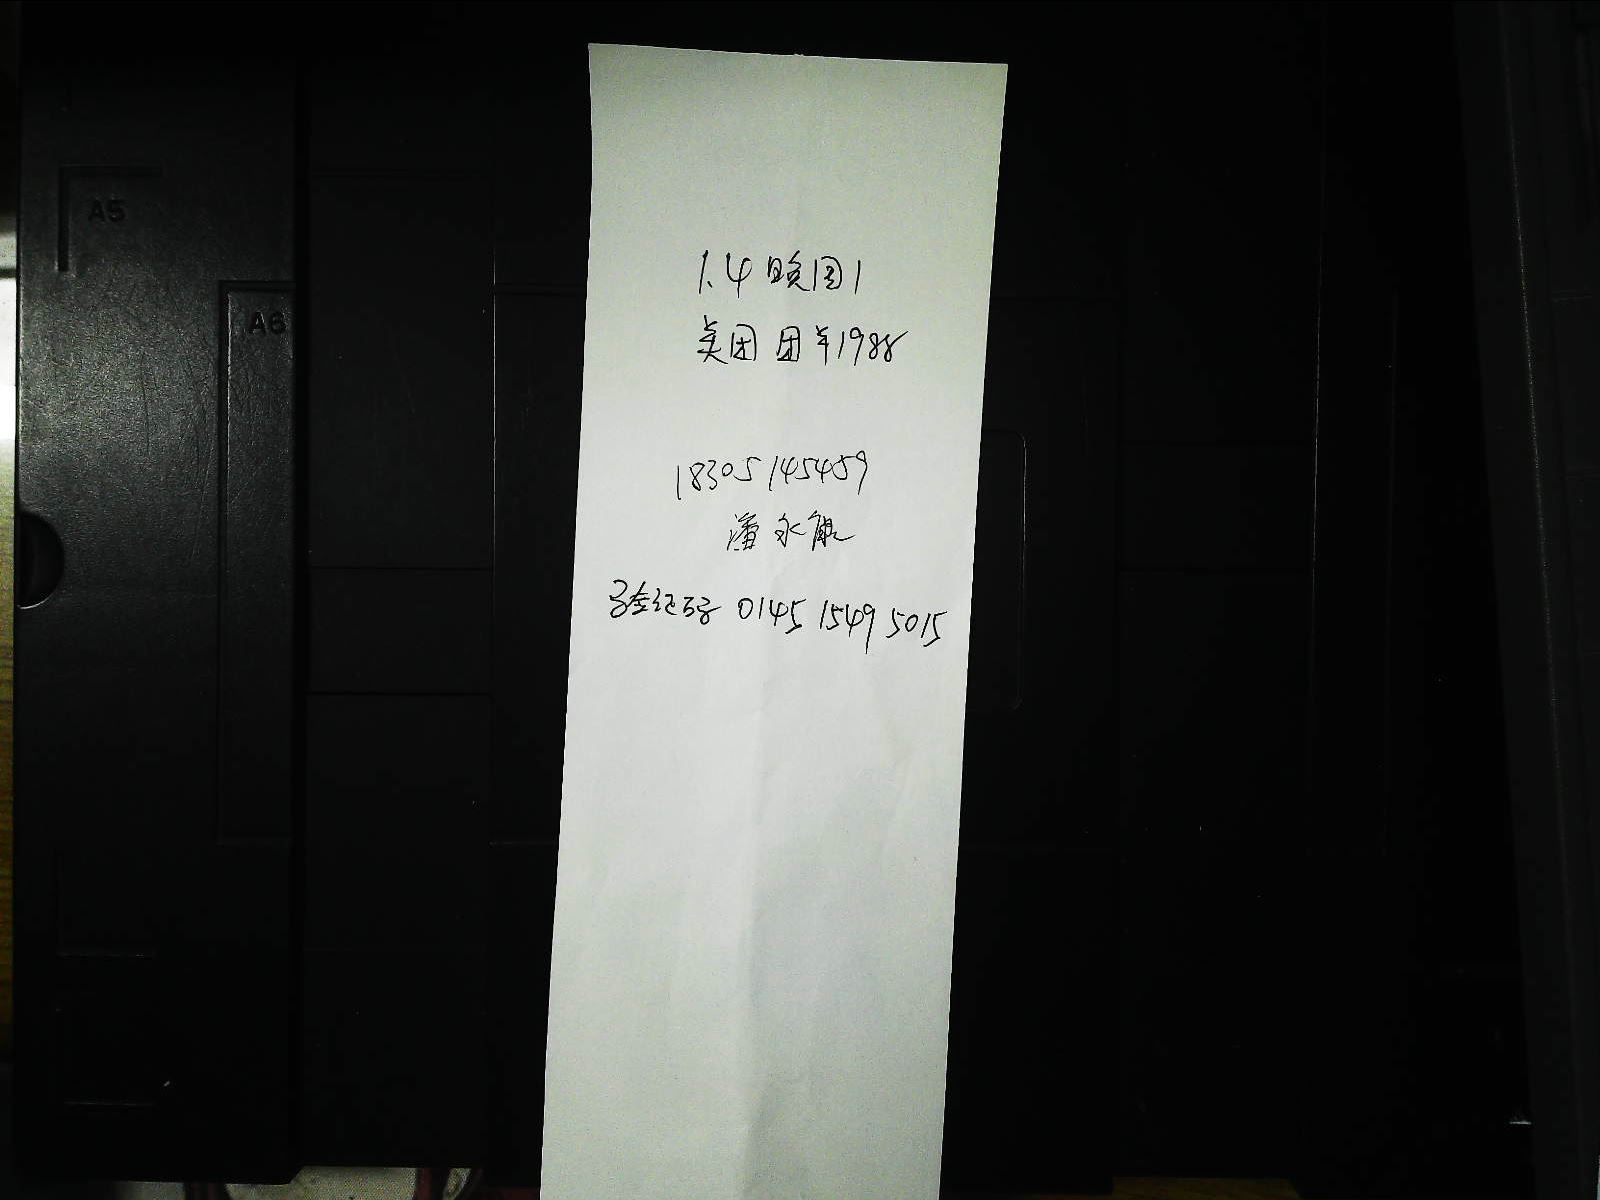 A5
A6
1.4 晚图1
美团 团年1988
18305145459
潘永
验证码 0145 1549 5015